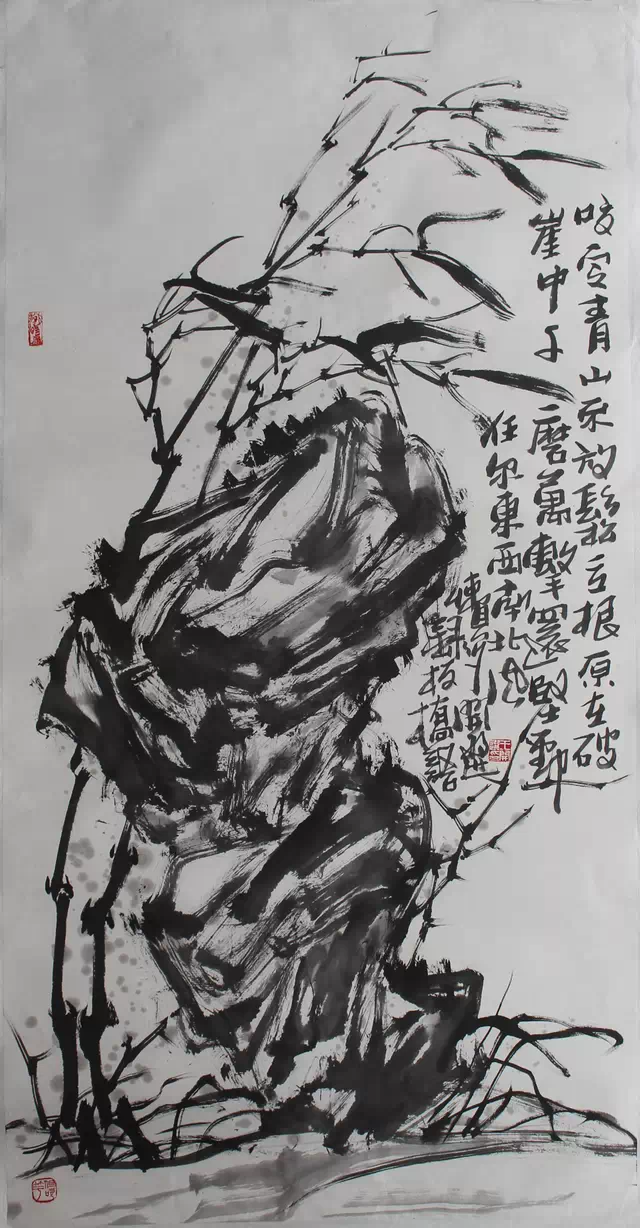 咬定青山不放鬆立根原在破
崖中千磨萬擊還堅勁
任尔東西南北風
板橋